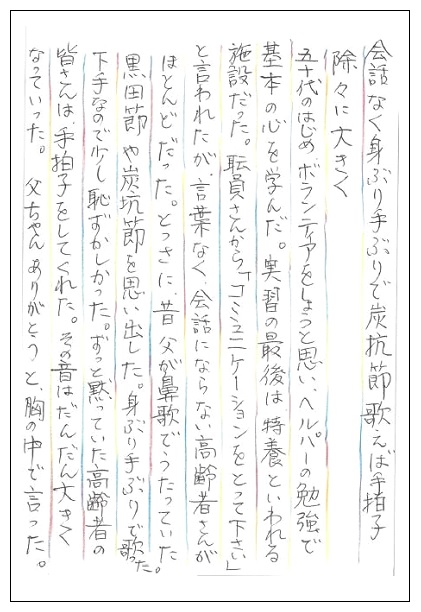 会話なく身ぶり手ぶりで炭抗節歌えば手拍子
除々に大きく
五十代のはじめボランティアをしようと思い、ヘルパーの勉強で
基本の心を学んだ。実習の最後は特養といわれる
施設だった。職員さんから「コミュニケーションをとって下さい」
と言われたが言葉なく、会話にならない高齢者さんが
ほとんどだった。とっさに、昔父が鼻歌でうたっていた
黒田節や炭坑節を思い出した。身ぶり手ぶりで歌った。
下手なので少し恥ずかしかった。ずっと黙っていた高齢者の
皆さんは、手拍子をしてくれた。その音はだんだん大きく
なっていった。父ちゃんありがとうと、胸の中で言った。